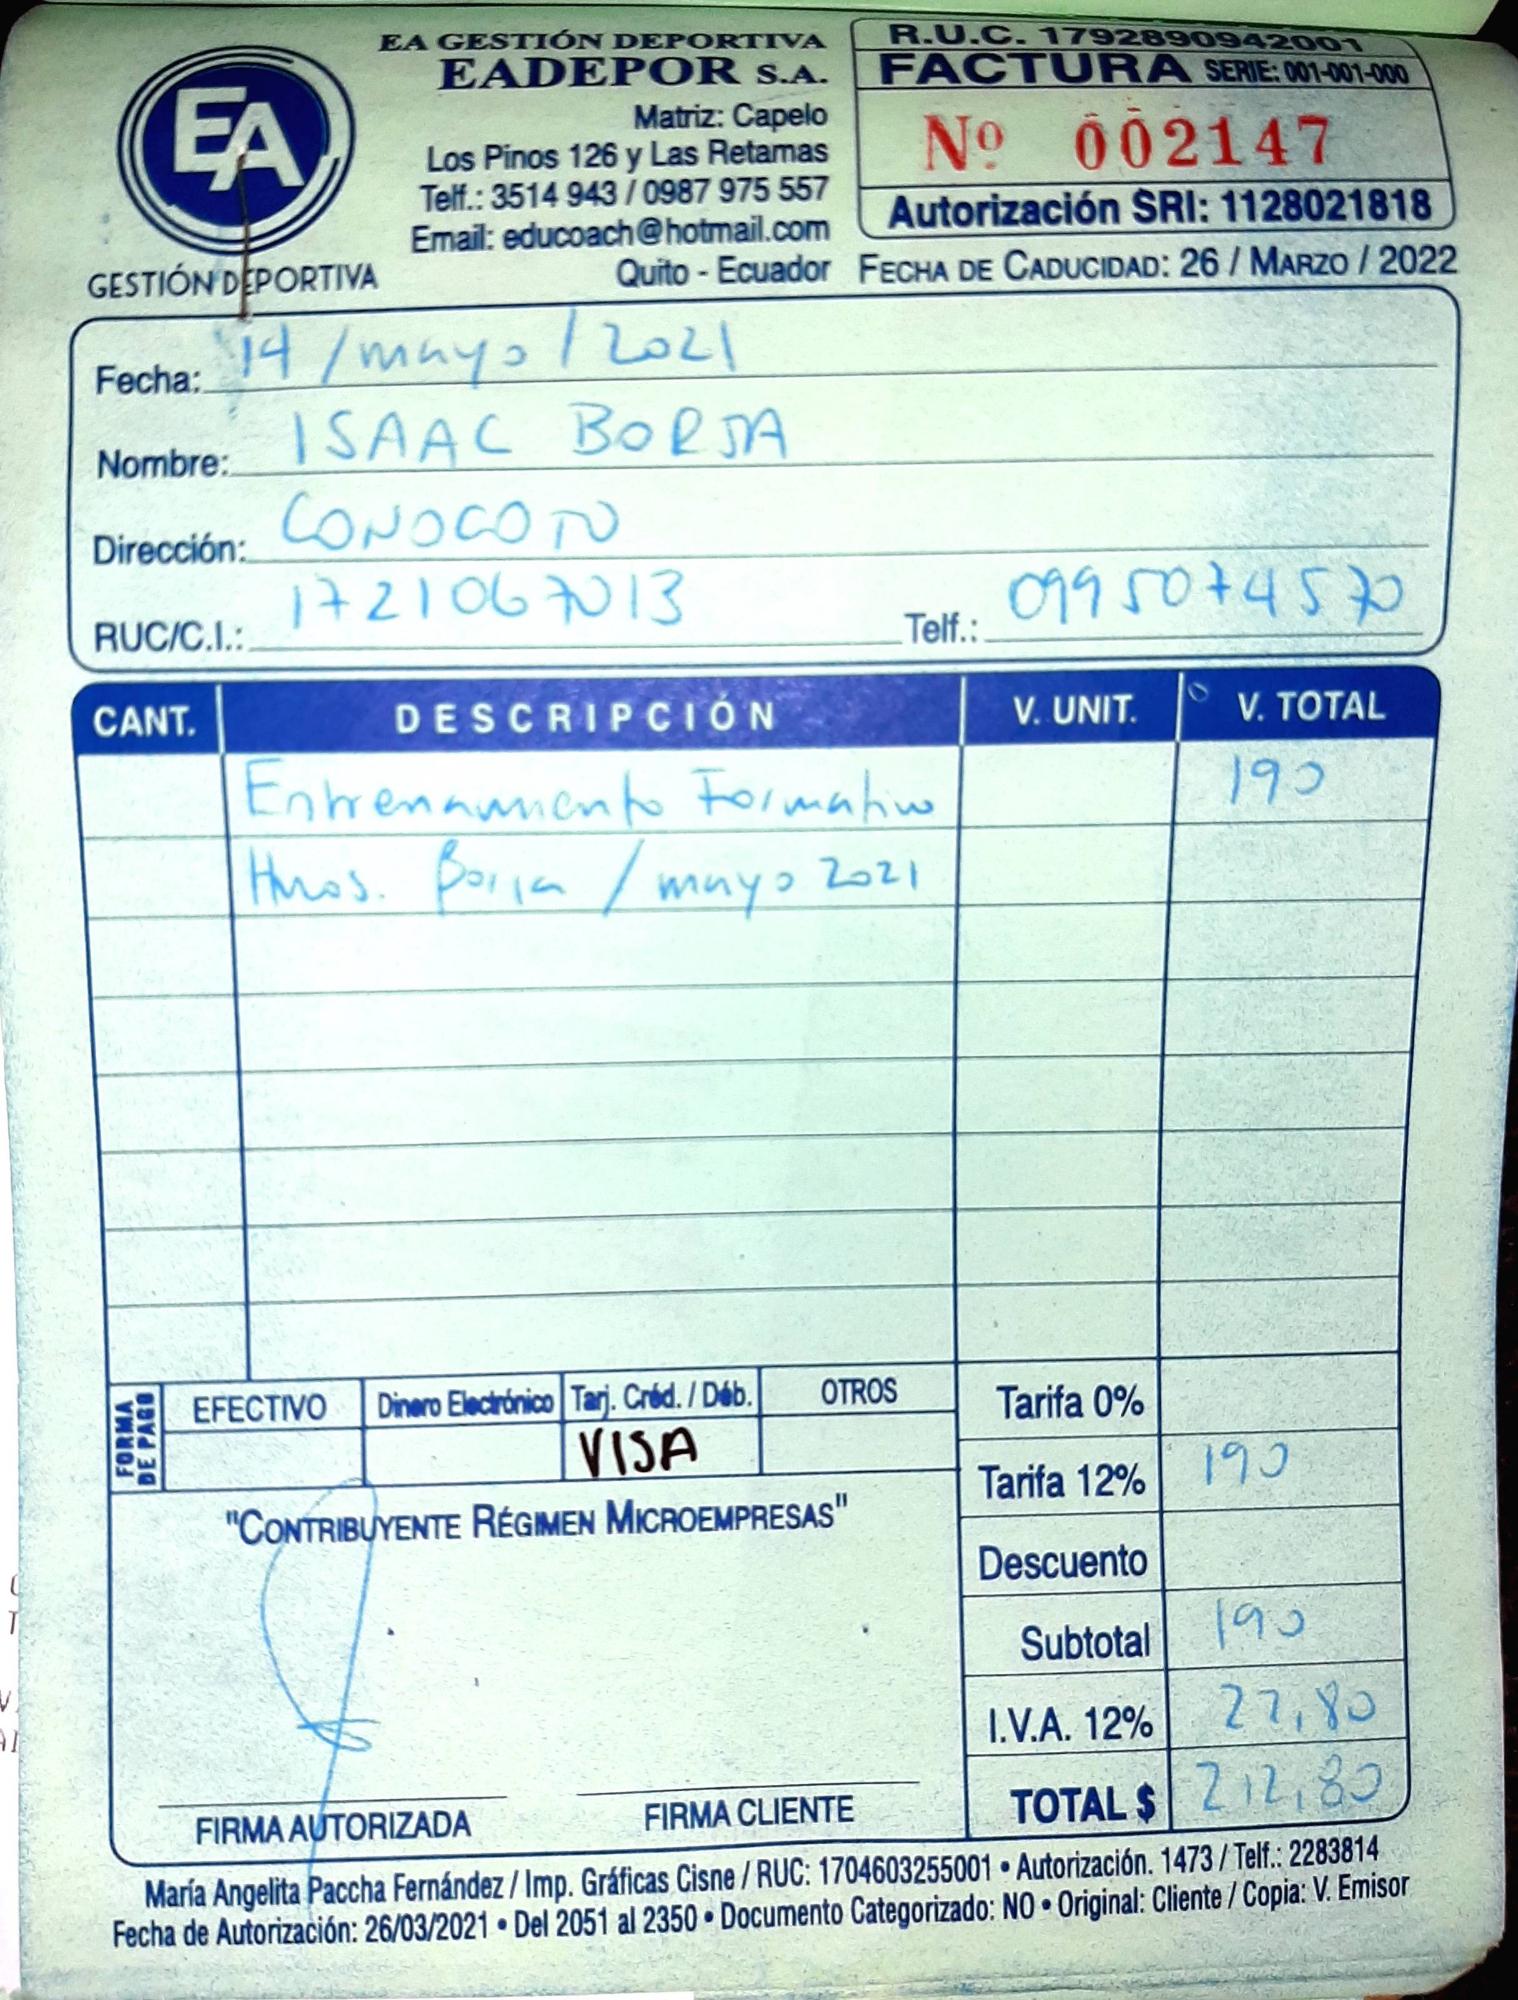 EA
GESTIÓN DEPORTIVA
EA GESTIÓN DEPORTIVA
EADEPOR S.A.
Matriz: Capelo
Los Pinos 126 y Las Retamas
Telf.: 3514 943 / 0987 975 557
Email: educoach@hotmail.com
Quito - Ecuador
R.U.C. 1792890942001
FACTURA SERIE: 001-001-000
Nº 002147
Autorización SRI: 1128021818
FECHA DE CADUCIDAD: 26 / MARZO / 2022
Fecha: 14 / mayo / 2021
Nombre: ISAAC BORJA
Dirección: CONOCOTO
RUC/C.I.: 1721067013 Telf.: 0995074570
CANT. DESCRIPCIÓN V. UNIT. V. TOTAL
Entrenamiento Formativo 190
Hnos. Borja / mayo 2021
FORMA DE PAGO
EFECTIVO Dinero Electrónico Tarj. Créd. / Déb. OTROS
VISA
"CONTRIBUYENTE RÉGIMEN MICROEMPRESAS"
Tarifa 0%
Tarifa 12% 190
Descuento
Subtotal 190
I.V.A. 12% 22,80
TOTAL $ 212,80
FIRMA AUTORIZADA FIRMA CLIENTE
María Angelita Paccha Fernández / Imp. Gráficas Cisne / RUC: 1704603255001 • Autorización. 1473 / Telf.: 2283814
Fecha de Autorización: 26/03/2021 • Del 2051 al 2350 • Documento Categorizado: NO • Original: Cliente / Copia: V. Emisor